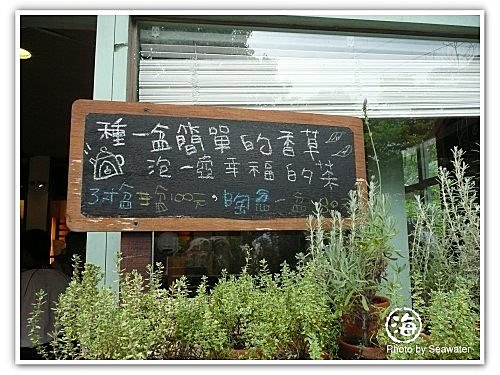 種一盆簡單的香草
泡一壺幸福的茶
3吋盆 盆100元，陶盆一盆
海
Photo by Seawater